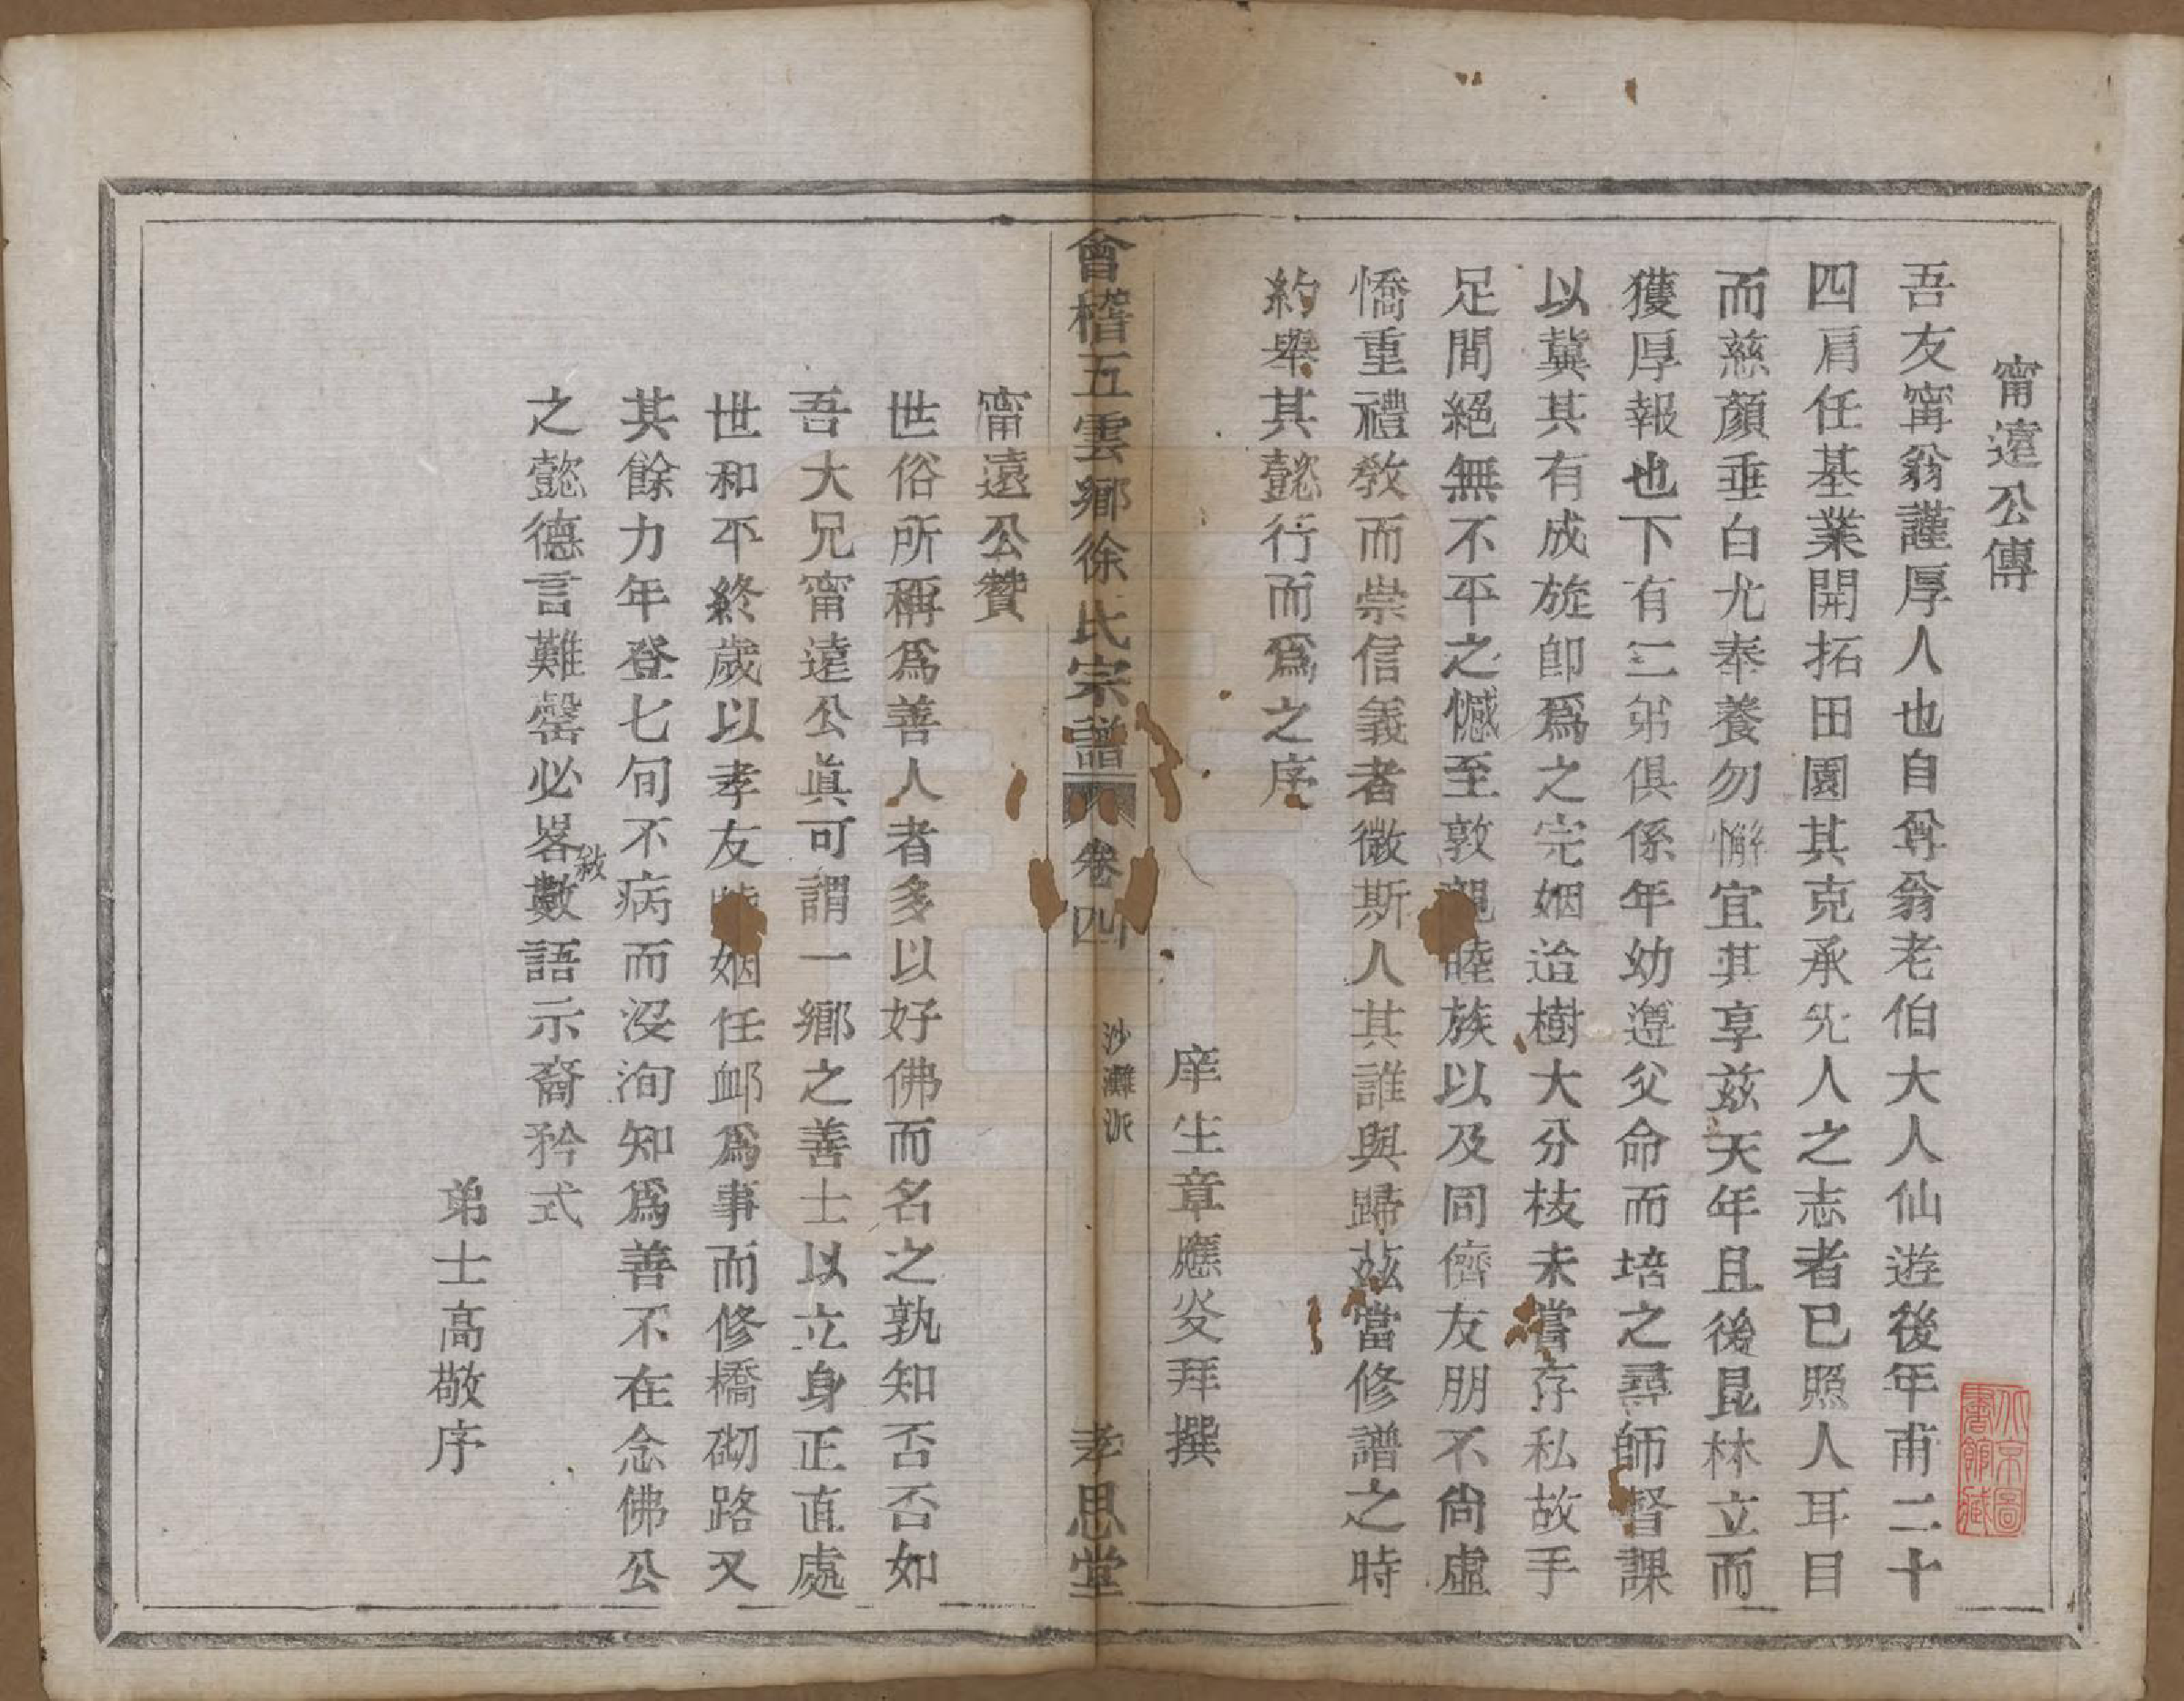 甯遠公傳
吾友甯翁謹厚人也自尊翁老伯大人仙遊後年甫二十
四肩任基業開拓田園其克承先人之志者已照人耳目
而慈顏垂白尤奉養勿懈宜其享茲天年且後昆林立而
獲厚報也下有三弟俱係年幼遵父命而培之尋師督課
以冀其有成旋卽爲之完姻迨樹大分枝未嘗存私故手
足間絕無不平之憾至敦親睦族以及同儕友朋不尙虛
憍重禮敎而崇信義者微斯人其誰與歸茲當修譜之時
約舉其懿行而爲之序
庠生章應炎拜撰
會稽五雲鄉徐氏宗譜 卷四 沙灘派 孝思堂
甯遠公贊
世俗所稱爲善人者多以好佛而名之孰知否否如
吾大兄甯遠公眞可謂一鄉之善士以立身正直處
世和平終歲以孝友姻任卹爲事而修橋砌路又
其餘力年登七旬不病而沒洵知爲善不在念佛公
之懿德言難罄必畧敘數語示裔矜式
弟士高敬序
北京圖
書館藏